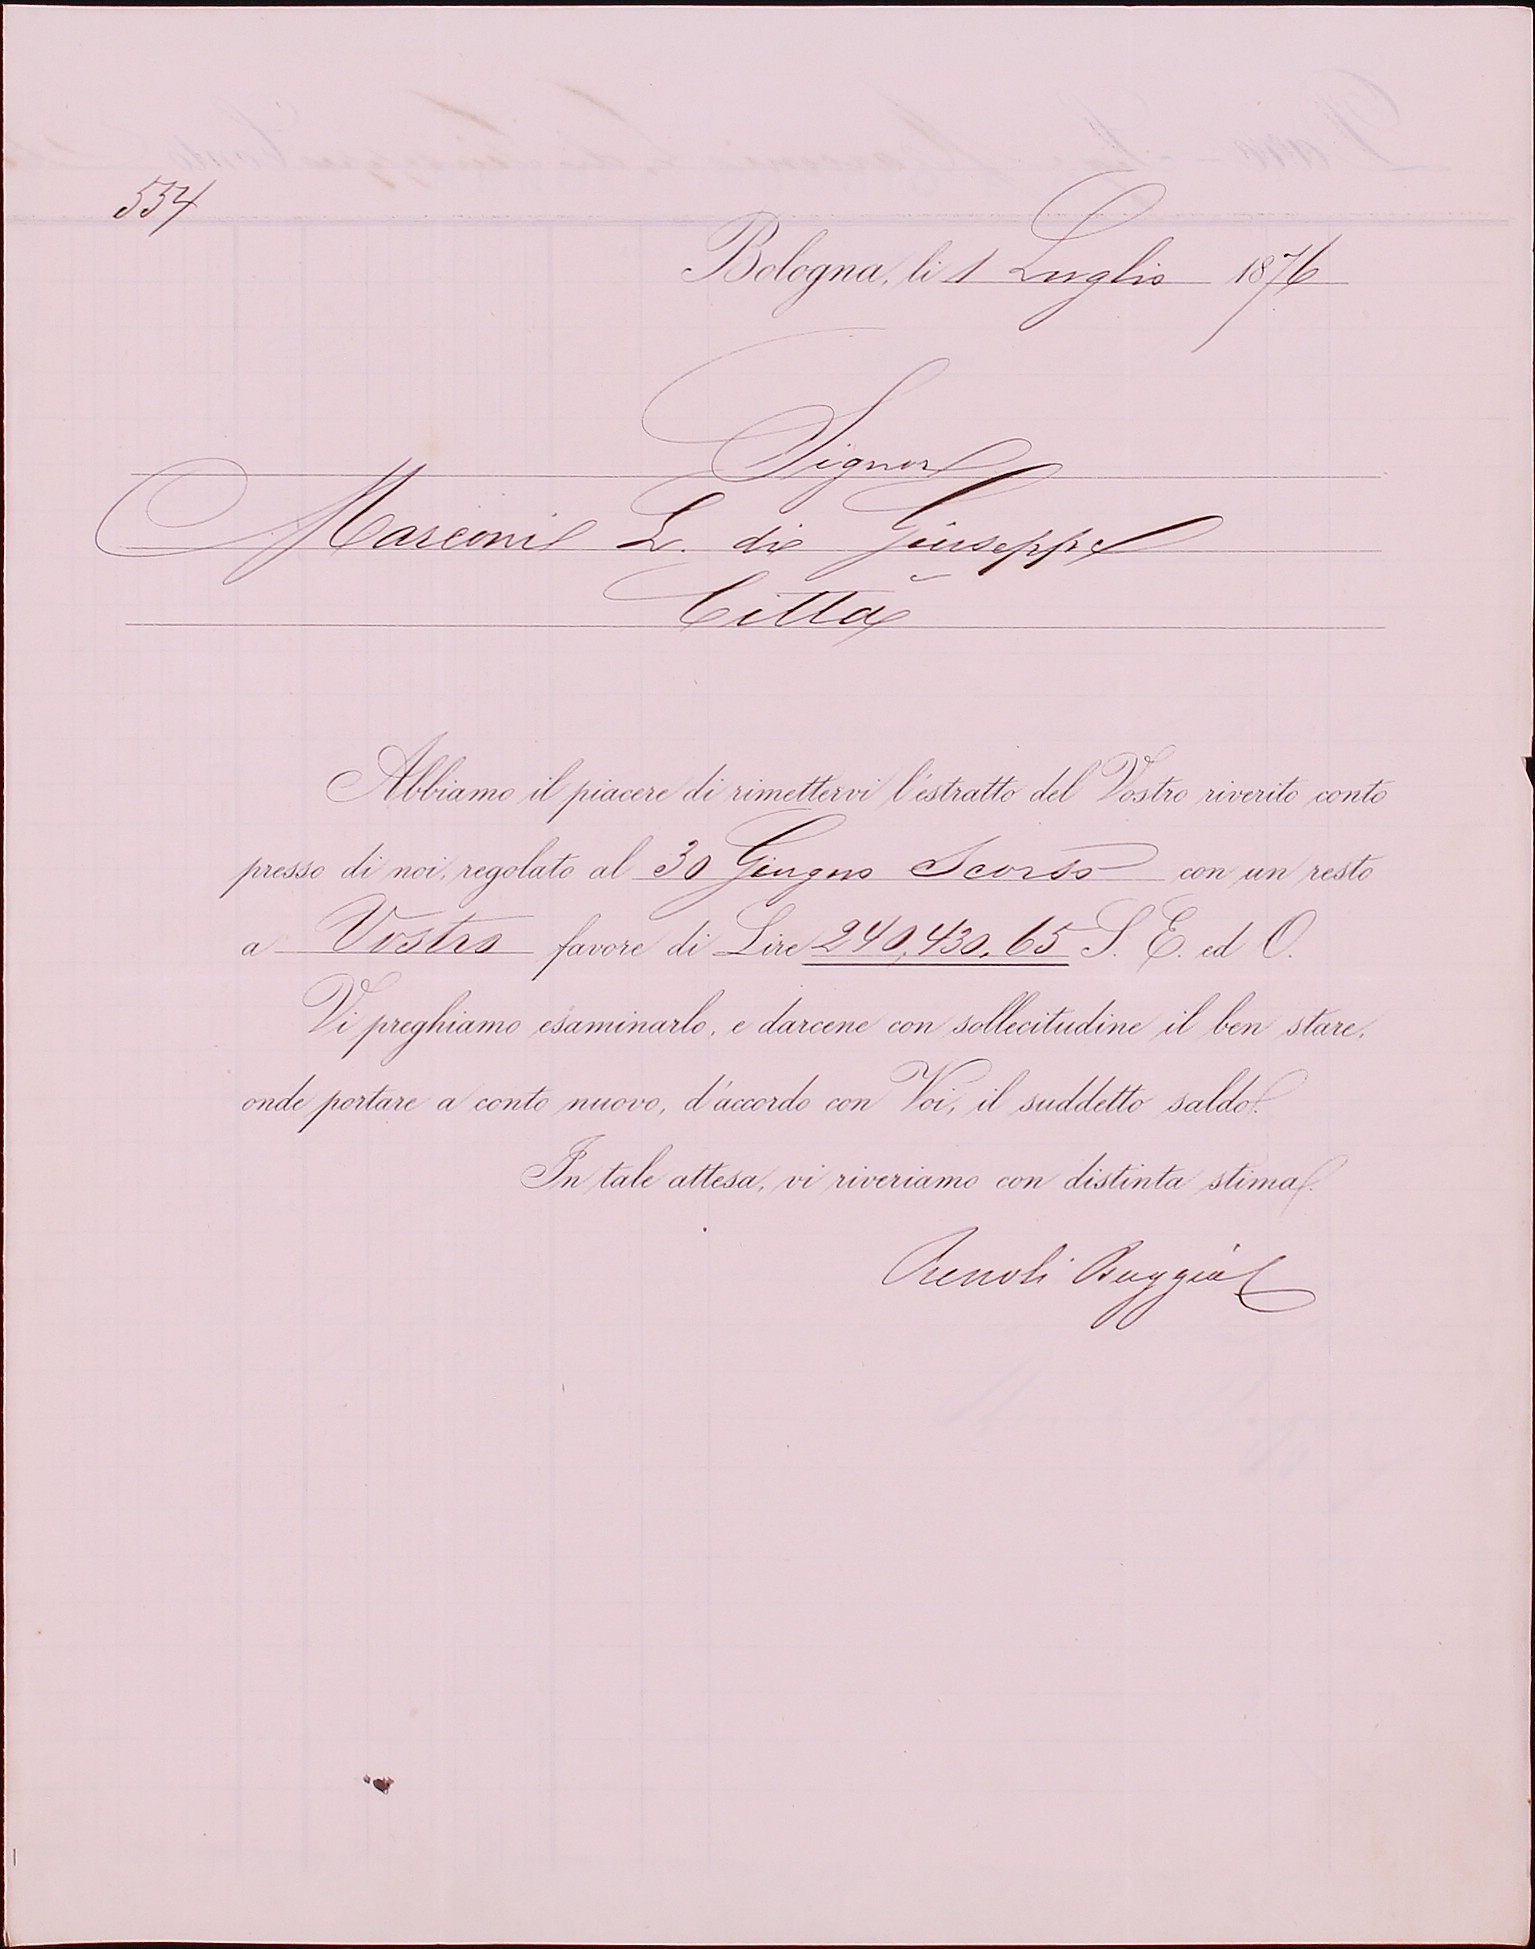 534
Bologna, li 1 Luglio 1876
Signor
Marconi L. di Giuseppe
Città
Abbiamo il piacere di rimettervi l'estratto del Vostro riverito conto
presso di noi, regolato al 30 Giugno Scorso con un resto
a Vostro favore di Lire 240,430.65 S. E. ed O.
Vi preghiamo esaminarlo, e darcene con sollecitudine il ben stare,
onde portare a conto nuovo, d'accordo con Voi, il suddetto saldo.
In tale attesa, vi riveriamo con distinta stima.
Renoli Buggio